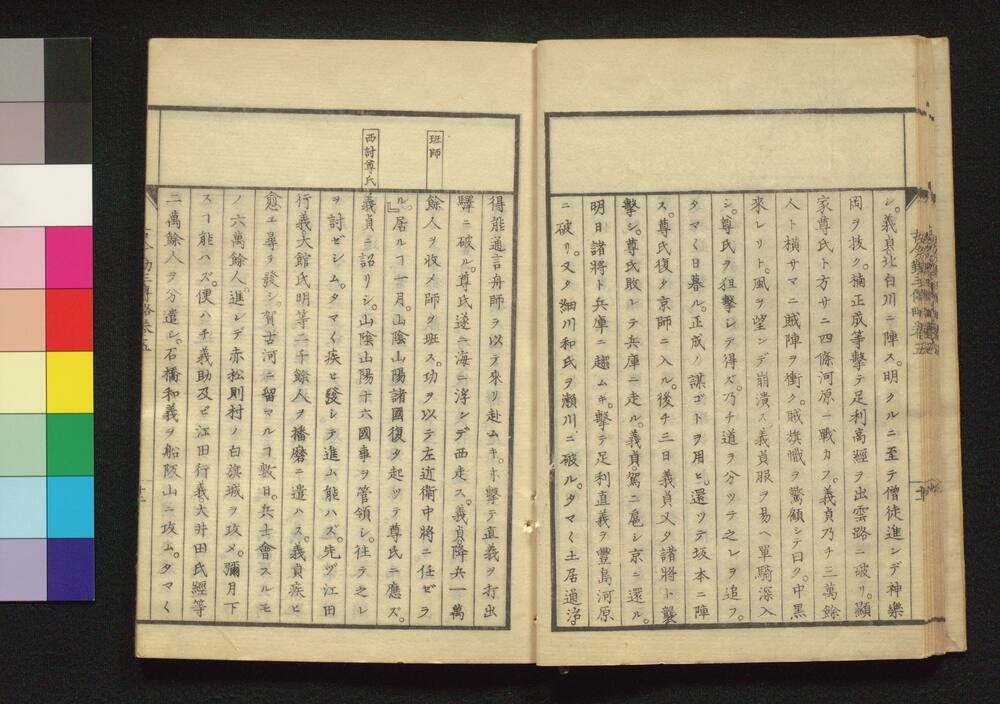 シ。義貞北白川ニ陣ス。明クルニ至テ僧徒進ンデ神樂
岡ヲ抜ク。楠正成等擊テ足利高經ヲ出雲路ニ破リ。顯
家尊氏ト方サニ四條河原ニ戰カフ。義貞乃チ三萬餘
人ト橫サマニ賊陣ヲ衝ク。賊旗幟ヲ驚顧シテ曰ク。中黒
來レリト。風ヲ望ンデ崩潰ス。義貞服ヲ易ヘ單騎深入
シ。尊氏ヲ狙擊シテ得ズ。乃チ道ヲ分ツテ之レヲ追フ。
タマ〱日暮ル。正成ノ謀ゴトヲ用ヒ。還ツテ坂本ニ陣
ス。尊氏復タ京師ニ入ル。後チ三日義貞又タ諸將ト襲
擊シ。尊氏敗レテ兵庫ニ走ル。義貞。駕ニ扈シ京ニ還ル。
明日諸將ト兵庫ニ趨ムキ。擊テ足利直義ヲ豐島河原
ニ破リ。又タ細川和氏ヲ瀬川ニ破ル。タマ〱土居通治。
班師
西討尊氏
得能通言舟師ヲ以テ來リ赴ムキ。亦擊テ直義ヲ打出
驛ニ破ル。尊氏遂ニ海ニ浮シデ西走ス。義貞。降兵一萬
餘人ヲ收メ師ヲ班ス。功ヲ以テ左近衛中將ニ任ゼラ
ル。』居ルヿ一月。山陰山陽諸國復タ起ツテ尊氏ニ應ズ。
義貞ニ詔リシ。山陰山陽十六國事ヲ管領シ。往テ之レ
ヲ討ゼシム。タマ〱疾ヒ發シテ進ム能ハズ。先ヅ江田
行義大館氏明等二千餘人ヲ播磨ニ遣ハス。義貞疾ヒ
愈エ尋ヲ發シ。賀古河ニ留マルヿ數日。兵士會スルモ
ノ六萬餘人。進シデ赤松則村ノ白旗城ヲ攻メ。彌月下
スヿ能ハズ。便ハチ義助及ビ江田行義。大井田氏經等
二萬餘人ヲ分遣シ。石橋和義ヲ船阪山ニ攻ム。タマ〱